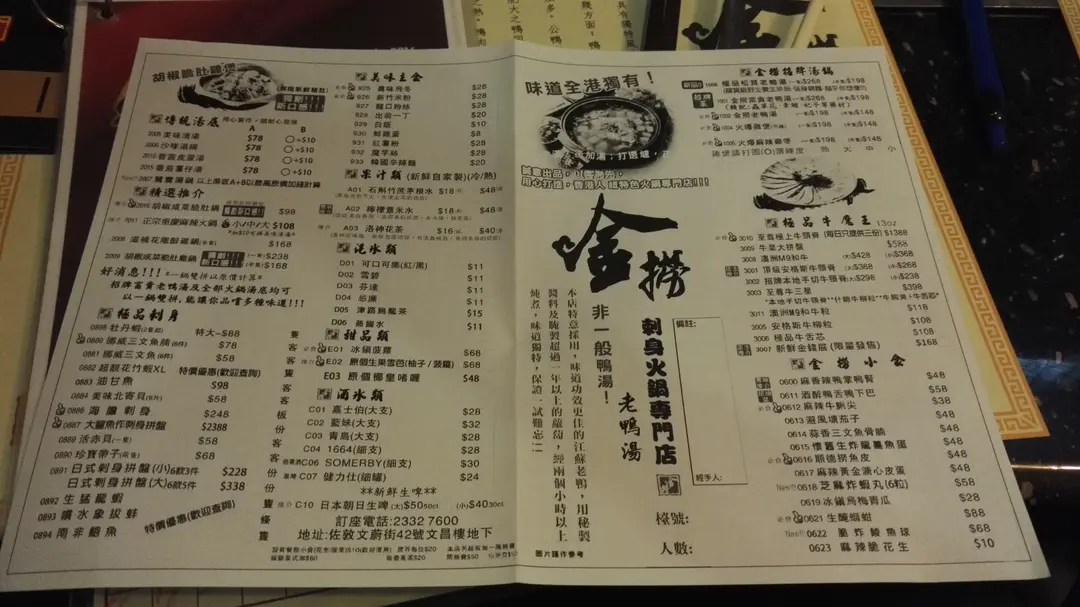 胡椒脆肚雞煲
傳統湯底 用心製作。細耐心熬候
A B
2005 美味清湯 $78 +$10
2006 沙嗲湯鍋 $78 +$10
2010 香茜皮蛋湯 $78 +$10
2015 番茄薯仔湯 $78 +$10
2007 鴛鴦湯鍋 以上湯底A+B以最高原價加錢計算
精選推介
2016 胡椒咸菜脆肚鍋 $98
2011 正宗重慶麻辣火鍋 小/中/大 $108
2008 $168
2009 胡椒咸菜脆肚雞鍋 (一隻)$238
(半隻)$168
好消息!!! *一鍋雙拼以原價計算*
招牌富貴老鴨湯及全部火鍋湯底均可
以一鍋雙拼,能讓你品嚐多種味道!!!
極品刺身
0898 牡丹蝦(2隻起) 特大~$88
0880 挪威三文魚腩(6件) $78
0881 挪威三文魚(6件) $58
0882 超靚花竹蝦XL 特價優惠(歡迎查詢)
0883 油甘魚 $98
0884 美味北寄貝(6片) $58
0886 海膽刺身 $248
0887 大龍魚作刺身拼盤 $2388
0889 活赤貝(一隻) $58
0890 珍寶帶子(兩隻) $68
0891 日式刺身拼盤(小)6款3件 $228
日式刺身拼盤(大)6款5件 $338
0892 生猛龍蝦
0893 噴水象拔蚌 特價優惠(歡迎查詢)
0894 南非鮑魚
美味主食
925 讚岐烏冬 $28
926 新竹米粉 $28
927 龍口粉絲 $28
928 出前一丁 $20
929 白飯 $10
930 鮮雞蛋 $8
931 紅薯粉 $28
932 魔芋絲 $28
933 韓國辛辣麵 $20
果汁類 (新鮮自家製)(冷/熱)
A01 石斛竹蔗茅根水 $18 $48
A02 檸檬薏米水 $18 $48
A03 洛神花茶 $16 $40
汽水類
D01 可口可樂(紅/黑) $11
D02 雪碧 $11
D03 芬達 $11
D04 忌廉 $11
D05 津路烏龍茶 $15
D06 蒸餾水 $11
甜品類
E01 冰鎮菠蘿 $68
E02 原個生果雪芭(柚子/菠蘿) $68
E03 原個椰皇啫喱 $48
酒水類
C01 嘉士伯(大支) $28
C02 藍妹(大支) $32
C03 青島(大支) $28
C04 1664(細支) $28
C06 SOMERBY(細支) $30
C07 健力仕(細罐) $24
**新鮮生啤**
C10 日本朝日生啤(大)$50 (小)$40
訂座電話:2332 7600
地址:佐敦文蔚街42號文昌樓地下
味道全港獨有!
誠意出品,以客為先,
用心打造,香港人 超特色火鍋專門店!!!
金撈
非一般鴨湯!
刺身火鍋專門店
老鴨湯
本店特意採用,味道功效更佳的江蘇老鴨,用秘製
醬料及腌製超過一年以上的蘿蔔,經兩個小時以上
炖煮,味道獨特,保證一試難忘!!
備註:
經手人:
檯號:
人數:
圖片謹作參考
金撈招牌湯鍋
1001 金撈富貴老鴨湯 $268 $168
1002 金撈老鴨湯 $198 $148
1004 火爆雞煲 $198 $148
1005 火爆麻辣雞煲 $198 $148
極品牛魔王 13oz
3010 至尊極上牛頸脊 (每日只提供三份) $1388
3009 牛皇大拼盤 $588
3008 澳洲M9和牛 $368
3001 頂級安格斯牛頸脊 $368 $268
3002 招牌本地手切牛頸脊 $368 $238
3003 至尊牛三星 $398
*本地手切牛頸脊*什錦牛柳粒**牛蝦滑+牛舌芯*
3011 澳洲M9和牛粒 $118
3005 安格斯牛柳粒 $108
3006 極品牛舌芯 $108
3007 新鮮金錢𦟌 (限量發售) $168
金撈小食
0600 麻香辣鴨掌鴨腎 $48
0611 酒醉鴨舌鴨下巴 $58
0612 麻辣牛脷尖 $38
0613 避風塘茄子 $48
0614 蒜香三文魚骨腩 $48
0615 懷舊生炸龍躉魚蛋 $48
0616 順德撈魚皮 $48
0617 麻辣黃金溏心皮蛋 $48
0618 芝麻炸蝦丸(6粒) $58
0619 冰鎮烏梅青瓜 $28
0621 生醃蟛蜞 $88
0622 脆炸鯪魚球 $68
0623 麻辣脆花生 $10